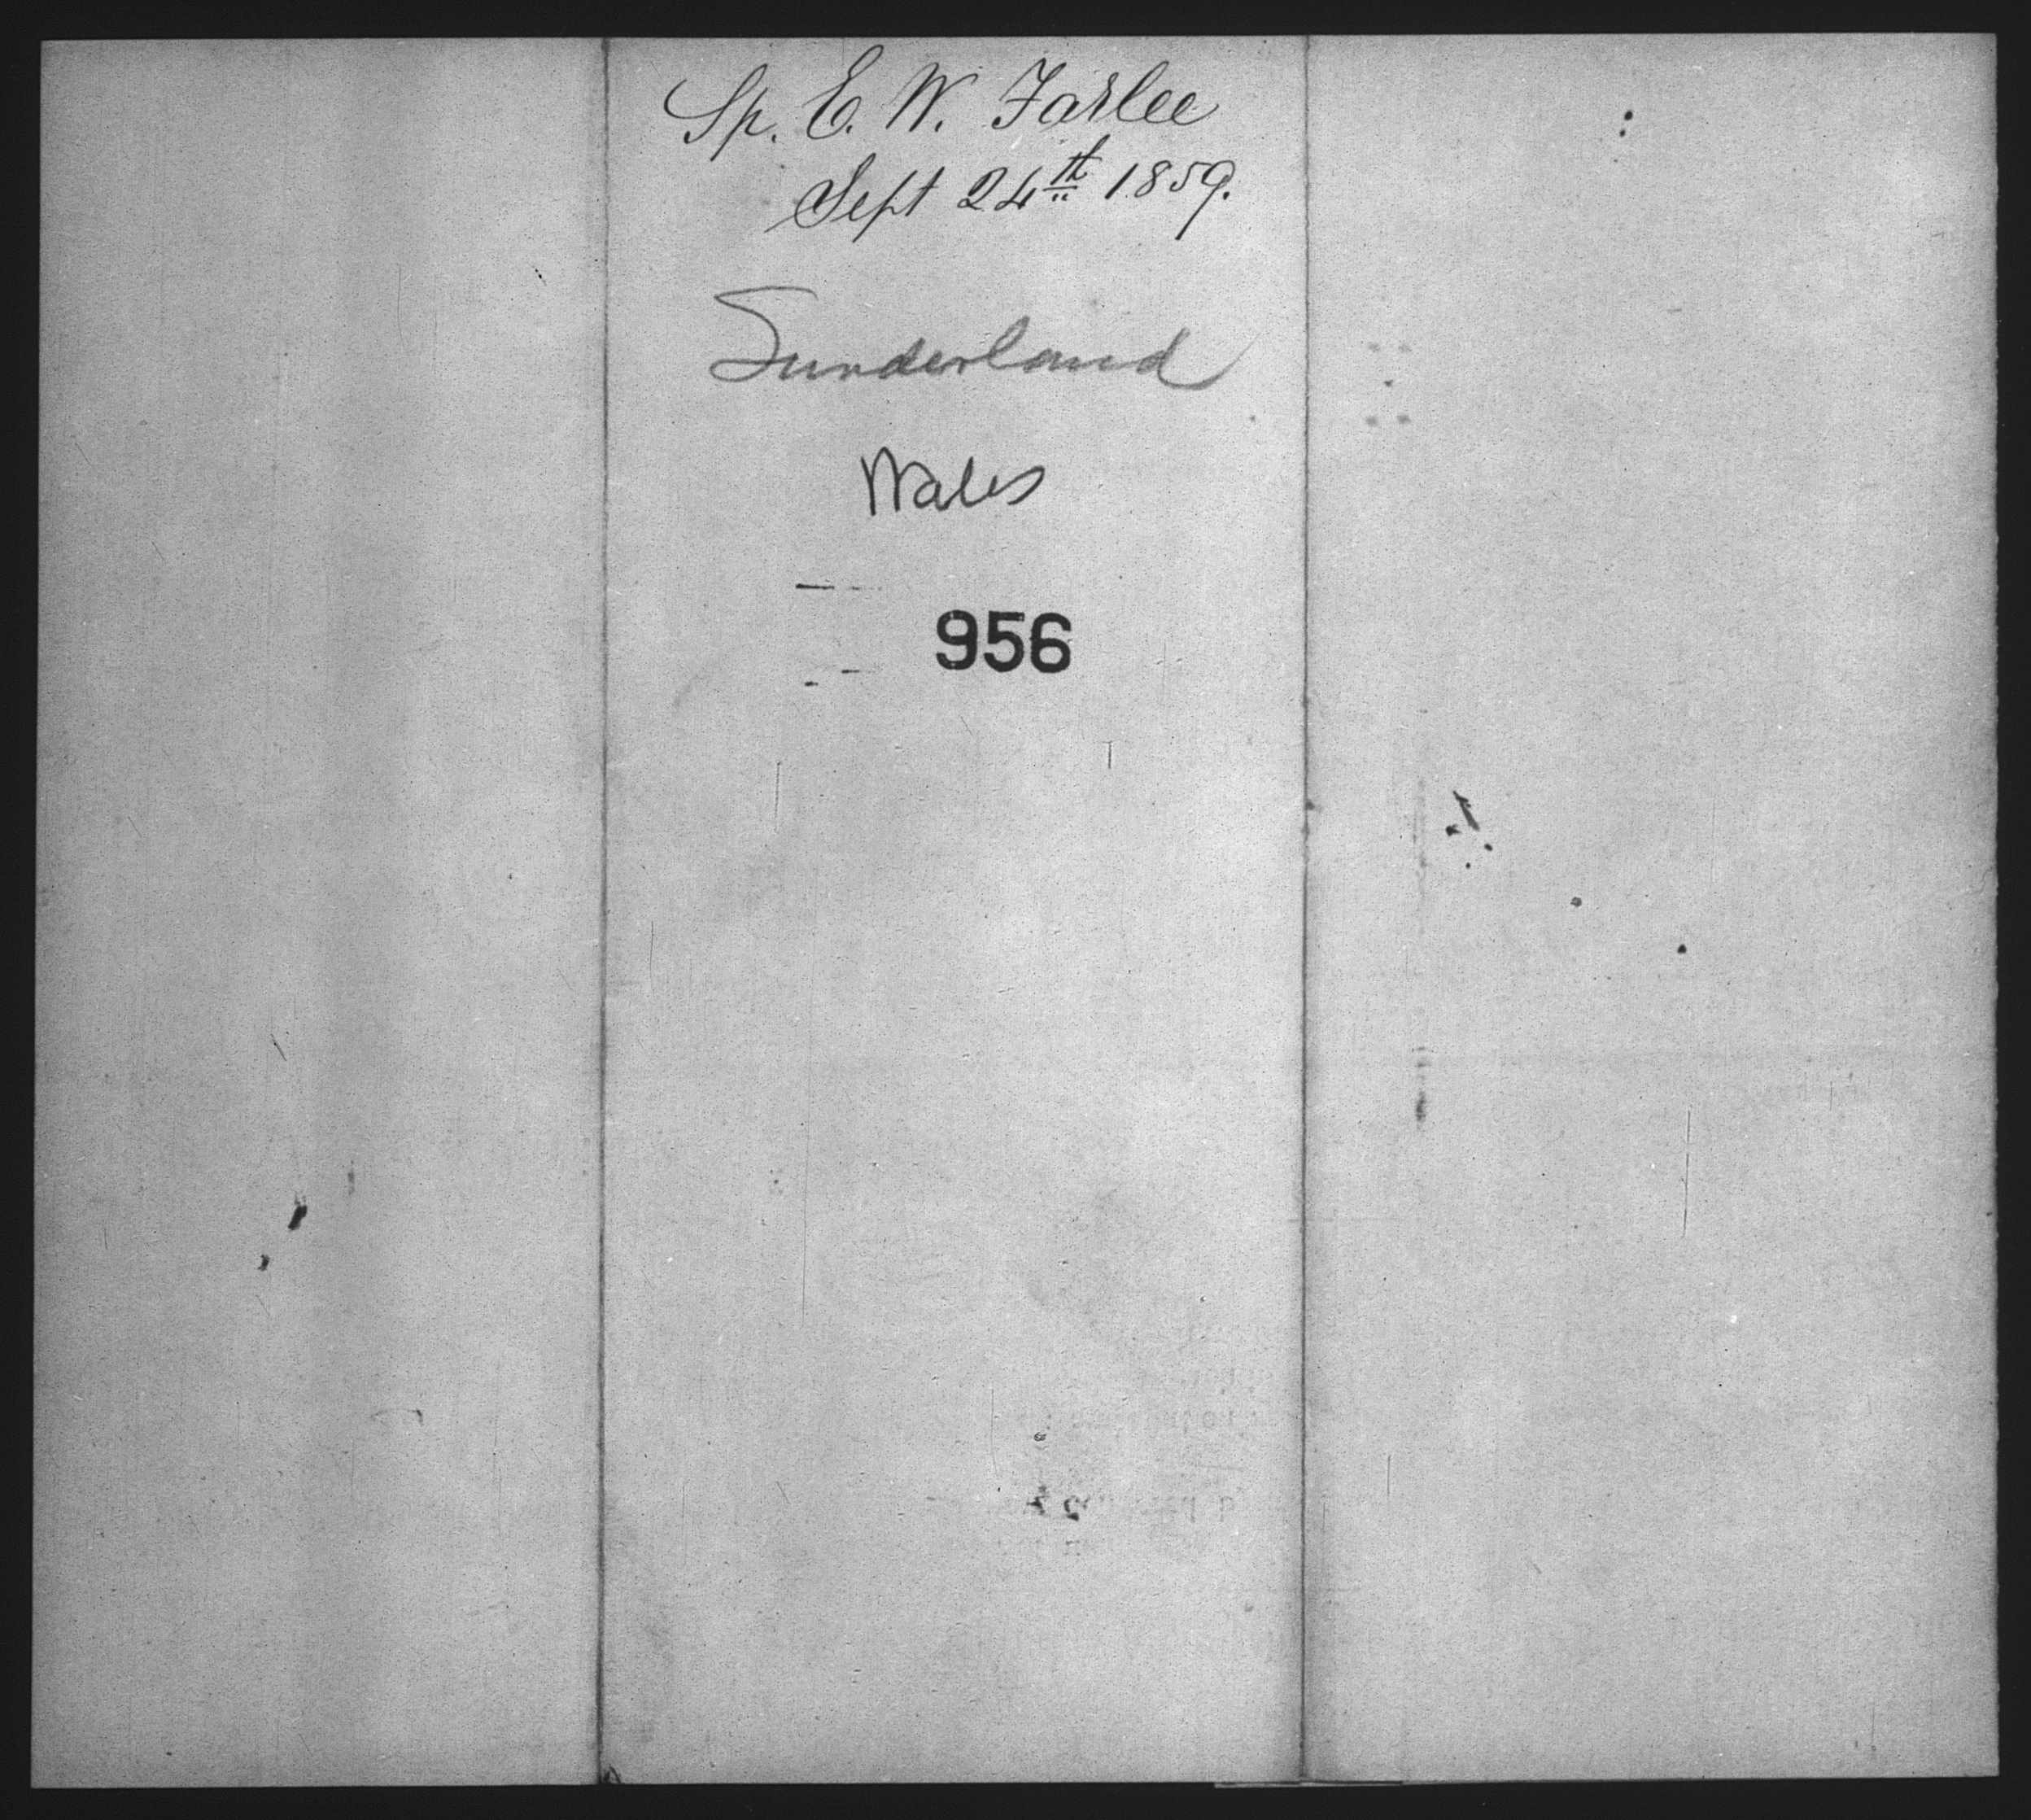 Sp. E. W. Farlee
Sept 24th 1859.
Sunderland
Wales
956